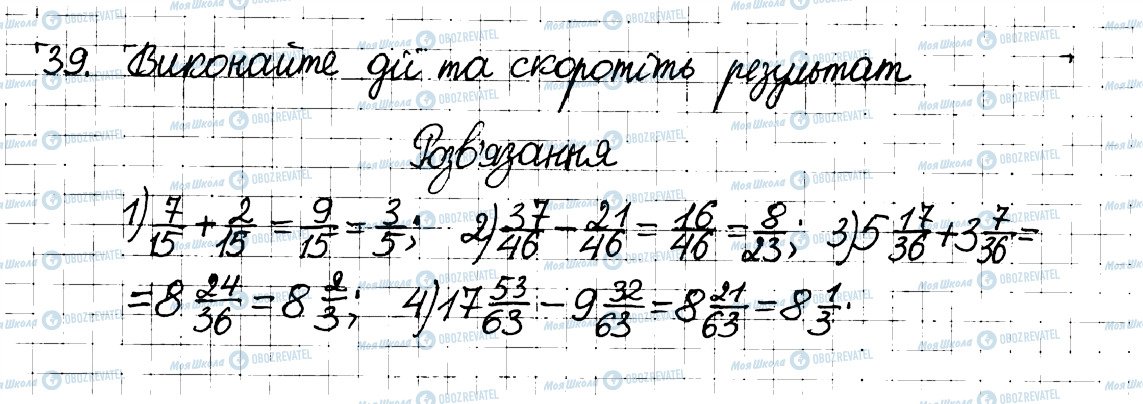 39. Виконайте дії та скоротіть результат
Розв'язання
1) 7/15 + 2/15 = 9/15 = 3/5; 2) 37/46 − 21/46 = 16/46 = 8/23; 3) 5 17/36 + 3 7/36 =
= 8 24/36 = 8 2/3; 4) 17 53/63 − 9 32/63 = 8 21/63 = 8 1/3.